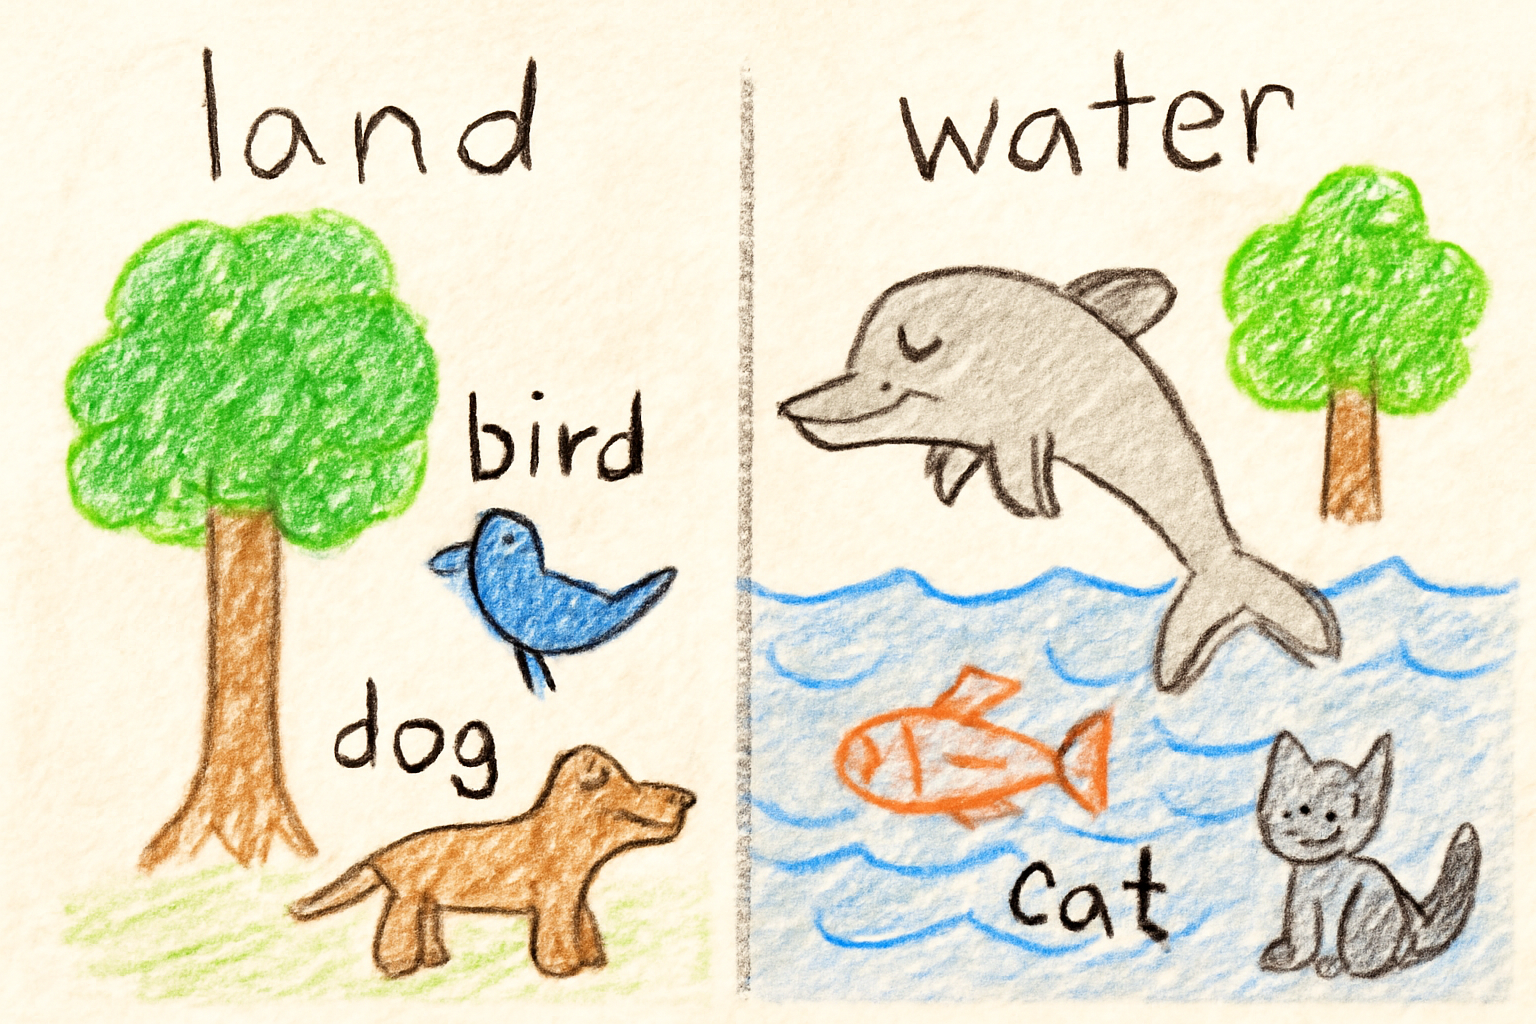 land
bird
dog
water
cat